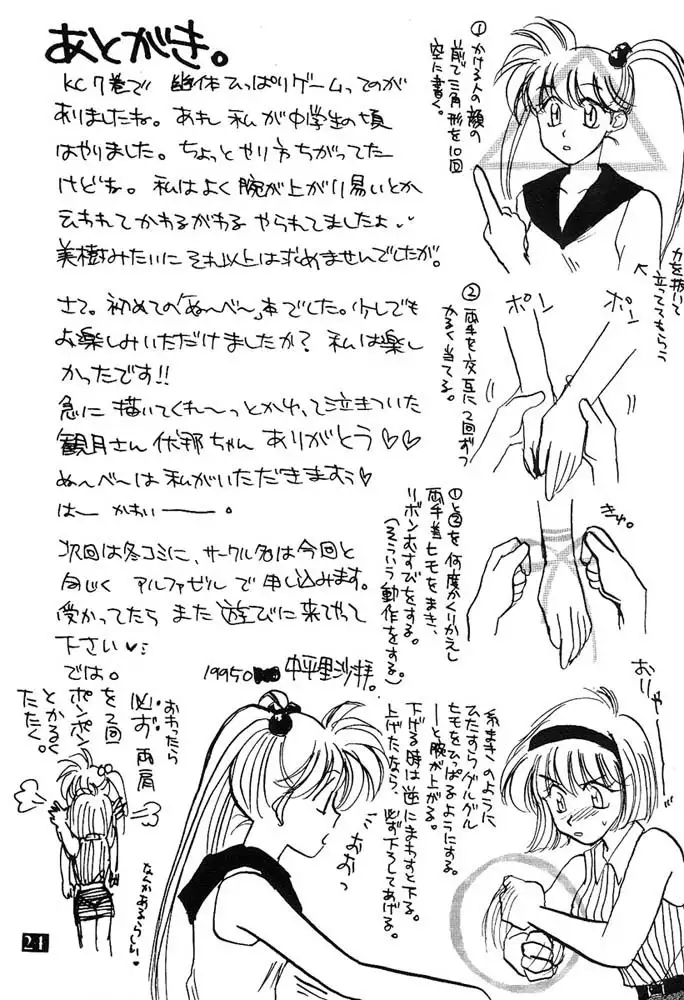 あとがき。
KC7巻で 幽体ひっぱりゲームってのが
ありましたね。あれ 私が中学生の頃
はやりました。ちょっとやり方ちがってた
けどね。私はよく腕が上がり易いとか
云われてかわるがわる やられてましたよ
美樹みたいに それ以上は求めませんでしたが。
さて。初めての「ぬ〜べ〜」本でした。少しでも
お楽しみいただけましたか? 私は楽し
かったです!!
急に 描いてくれ〜っとかゆって泣きついた
観月さん 伏那ちゃん ありがとう♡♡
ぬ〜べ〜は 私がいただきますぅ♡
はー かわいーーー。
次回は冬コミに、サークル名は今回と
同じく アルファゼルで申し込みます。
受かってたら また 遊びに来てやって
下さい♡
では。
19950 中平里沙
①かける人の顔の
前で三角形を10回
空に書く。
力を抜いて
立っててもらう
②両手を交互に2回ずつ
かるく当てる。
ポン
ポン
①と②を何度かくりかえし
両手首ヒモをまき、
リボンむすびをする。
(そういう動作をする。)
きゅ。
糸まきのように
ひたすらグルグル
ヒモをひっぱるようにする。
ーーと腕が上がる。
下げる時は逆にまわすと下る。
上げたなら、必ず下ろしてあげる。
おりゃー
おおっ
おわったら
必ず両肩
を2回
ポンポン
とかるく
たたく。
なんかあるらしい
21